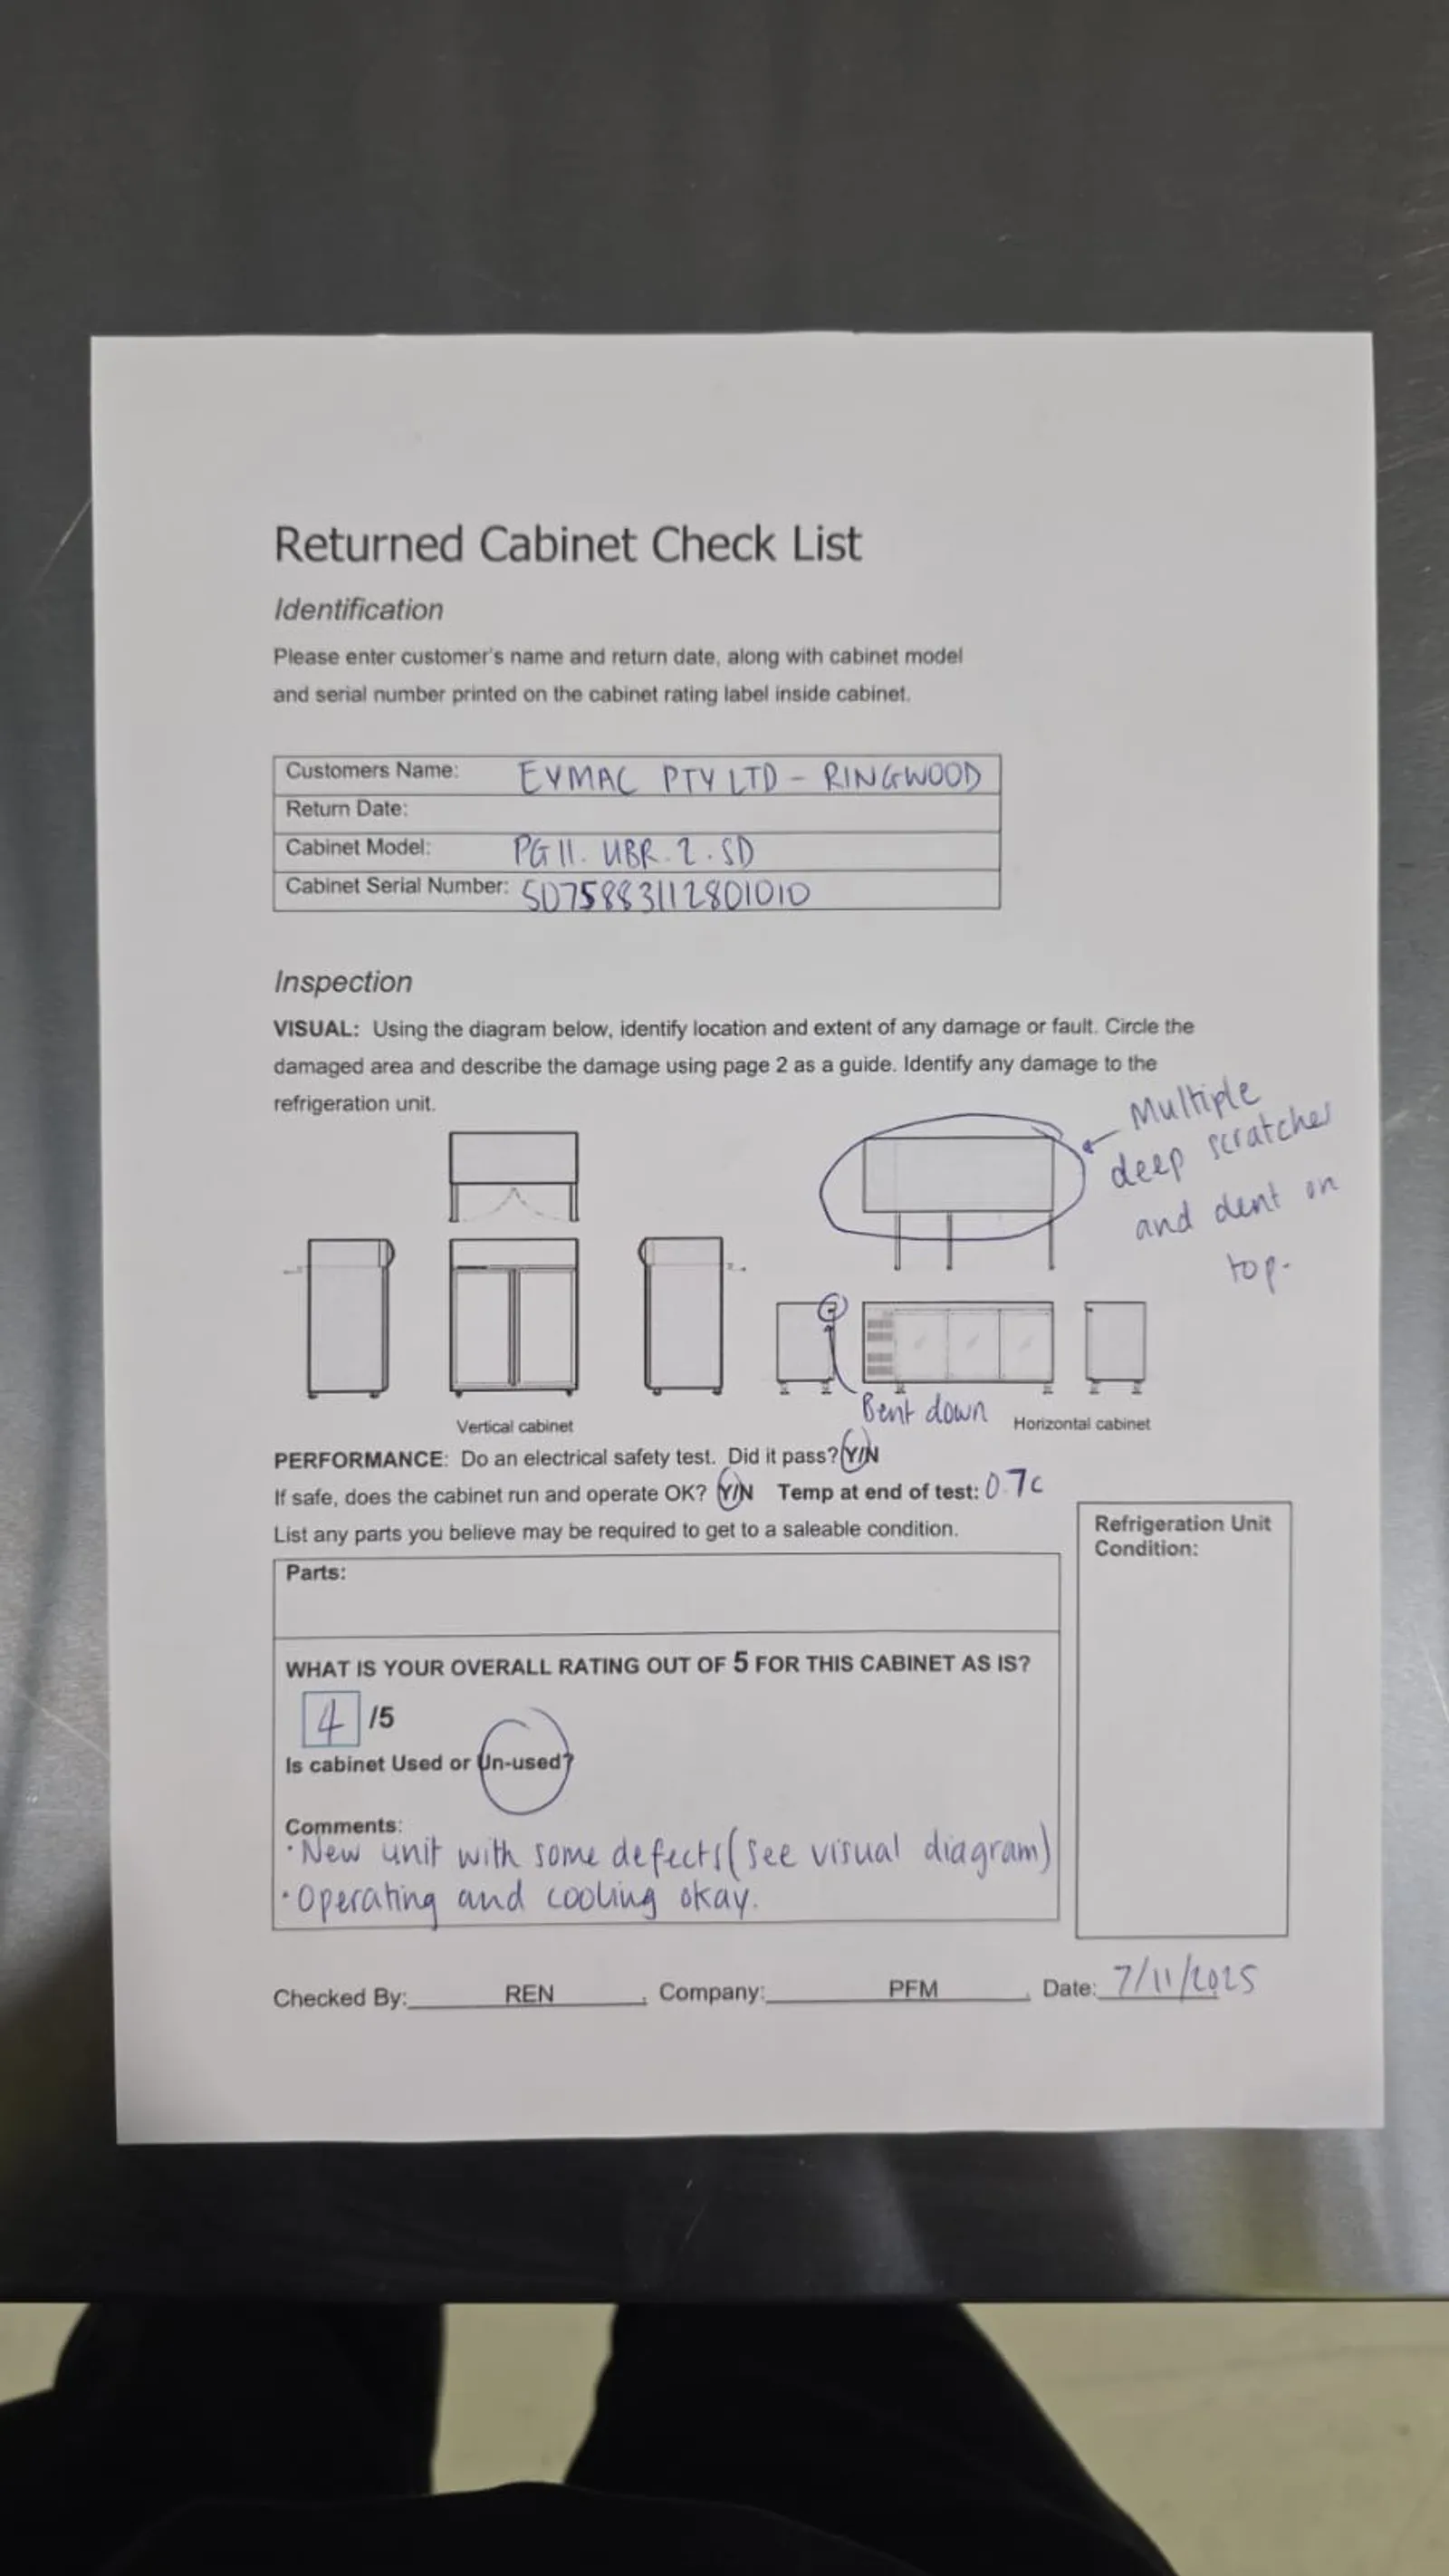 Returned Cabinet Check List
Identification
Please enter customer's name and return date, along with cabinet model
and serial number printed on the cabinet rating label inside cabinet.
Customers Name: EYMAC PTY LTD - RINGWOOD
Return Date:
Cabinet Model: PG11. UBR. 2. SD
Cabinet Serial Number: SD75883112801010
Inspection
VISUAL: Using the diagram below, identify location and extent of any damage or fault. Circle the
damaged area and describe the damage using page 2 as a guide. Identify any damage to the
refrigeration unit.
Multiple
deep scratches
and dent on
top.
Bent down
Vertical cabinet
Horizontal cabinet
PERFORMANCE: Do an electrical safety test. Did it pass? Y/N
If safe, does the cabinet run and operate OK? Y/N Temp at end of test: 0.7c
List any parts you believe may be required to get to a saleable condition.
Refrigeration Unit
Condition:
Parts:
WHAT IS YOUR OVERALL RATING OUT OF 5 FOR THIS CABINET AS IS?
4 /5
Is cabinet Used or Un-used?
Comments:
• New unit with some defects (see visual diagram)
• Operating and cooling okay.
Checked By: REN , Company: PFM , Date: 7/11/2025